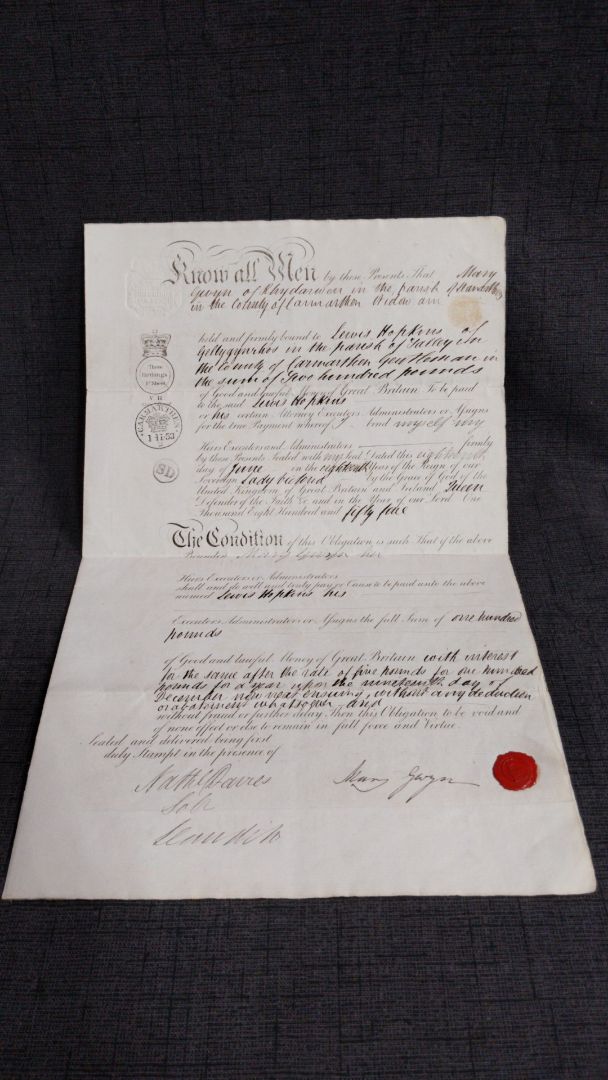 Know all Men by these Presents That Mary
Gwyn of Rhydarwen in the parish of
in the County of Carmarthen Widow am
held and firmly bound to Lewis Hopkins of
in the parish of Talley in
the County of Carmarthen Gentleman in
the sum of Two hundred pounds
of Good and lawful Money of Great Britain To be paid
to the said Lewis Hopkins
or his certain Attorney Executors Administrators or Assigns
for the true Payment whereof I bind myself my
Three Halfpence
V R
CARMARTHEN
SD
Heirs Executors and Administrators firmly
by these Presents Sealed with my Seal Dated this eighteenth
day of June in the eighteenth Year of the Reign of our
Sovereign Lady Victoria by the Grace of God of the
United Kingdom of Great Britain and Ireland Queen
Defender of the Faith &c and in the Year of our Lord One
Thousand Eight Hundred and fifty five
The Condition of this Obligation is such That if the above
Bounded Mary Gwyn her
Heirs Executors or Administrators
shall and do well and truly pay or Cause to be paid unto the above
named Lewis Hopkins his
Executors Administrators or Assigns the full Sum of one hundred
pounds
of Good and lawful Money of Great Britain with interest
for the same after the rate of five pounds for one hundred
pounds for a year upon the nineteenth day of
December now next ensuing, without any deduction
or abatement whatsoever and
without fraud or further delay Then this Obligation to be void and
of none effect or else to remain in full force and Virtue.
Sealed and delivered being first
duly Stampt in the presence of
Nathl Davies
Mary Gwyn
Solr